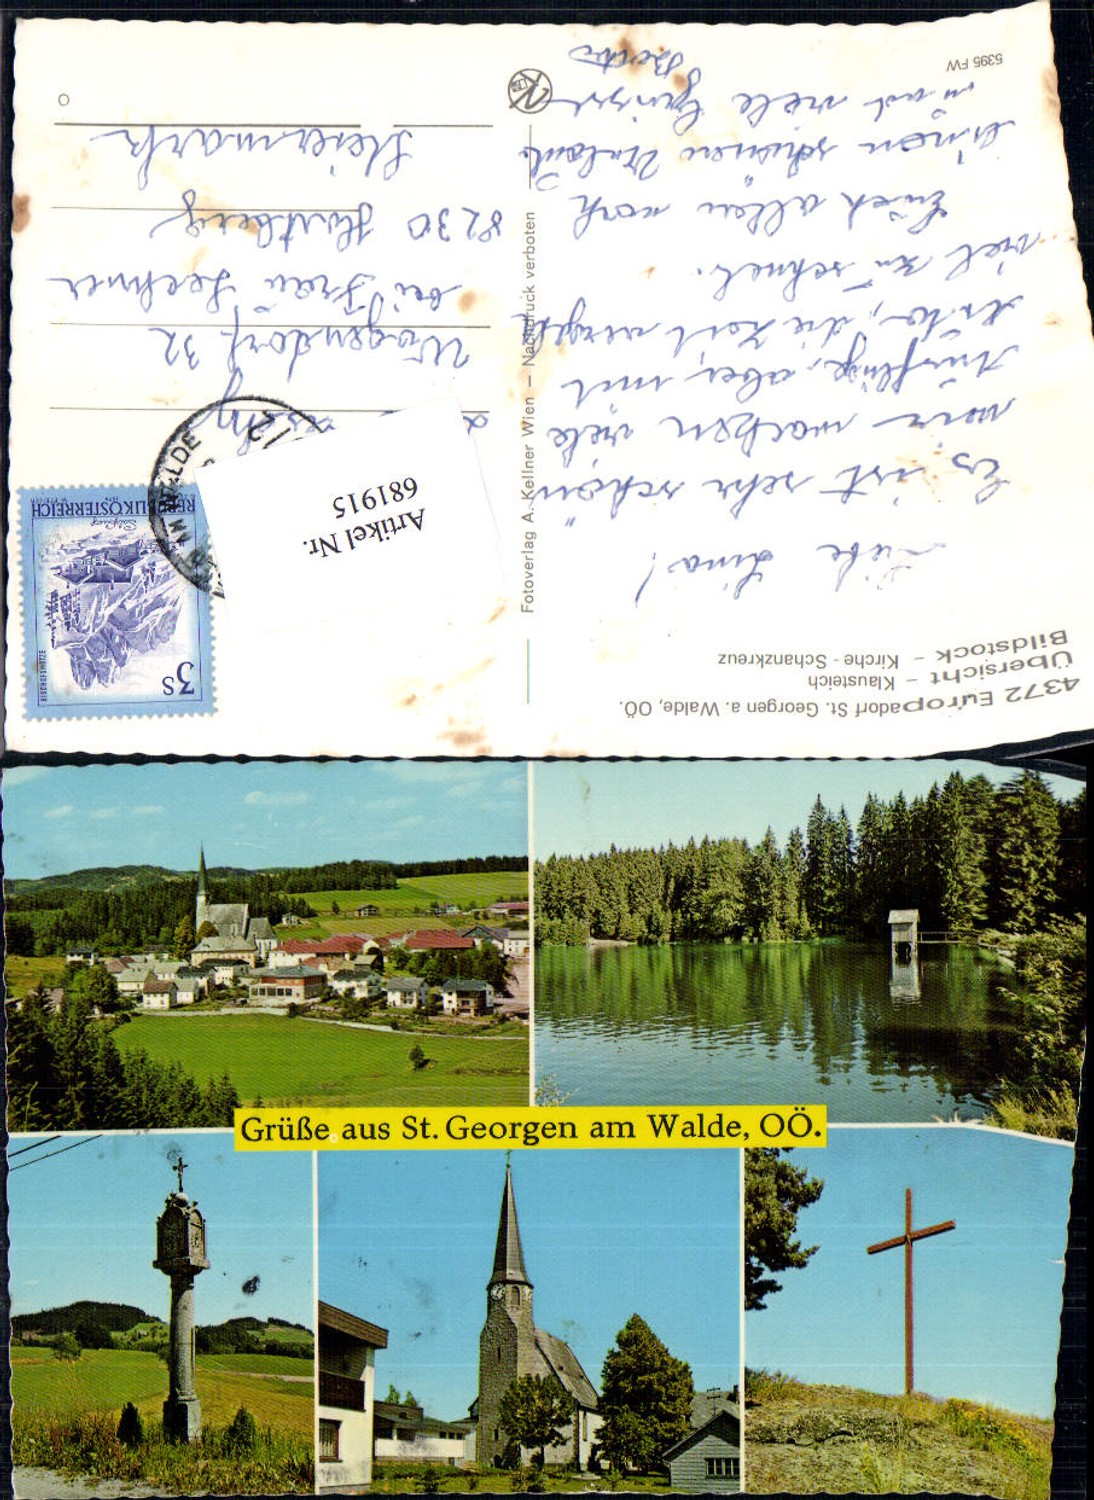 4372 Europadorf St. Georgen a. Walde, OÖ.
Übersicht – Klausteich
Bildstock – Kirche - Schanzkreuz
Liebe Lina!
Es ist sehr schön
wir machen viele
Ausflüge, aber mit
Auto, die Zeit vergeht
viel zu schnell.
Euch allen noch
einen schönen Urlaub
und viele Grüsse
Fotoverlag A. Kellner Wien – Nachdruck verboten
5395 FW
REPUBLIK ÖSTERREICH
BISCHOFSMÜTZE
3S
WALDE
Artikel Nr.
681915
32
bei Frau Lechner
8230 Hartberg
Steiermark
Grüße aus St. Georgen am Walde, OÖ.